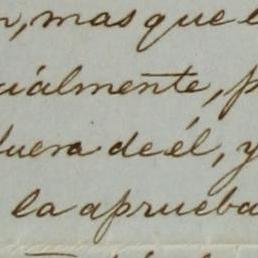 , mas que
cialmente, p
fuera de él, y
la aprueba